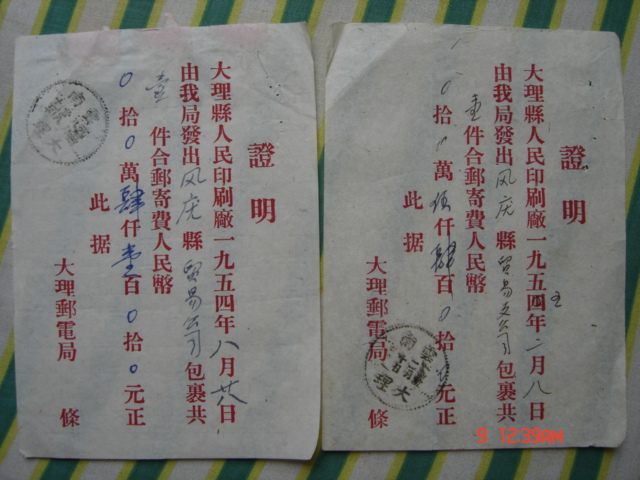 證明
大理縣人民印刷廠一九五四年八月廿八日
由我局發出风庆縣贸易公司包裹共
壹件合郵寄費人民幣
0拾0萬肆仟壹百0拾0元正
此据
大理郵電局 條
證明
大理縣人民印刷廠一九五四年二月八日
由我局發出风庆縣贸易支公司包裹共
壹件合郵寄費人民幣
拾萬伍仟肆百0拾元正
此据
大理郵電局 條
9 12:39AM